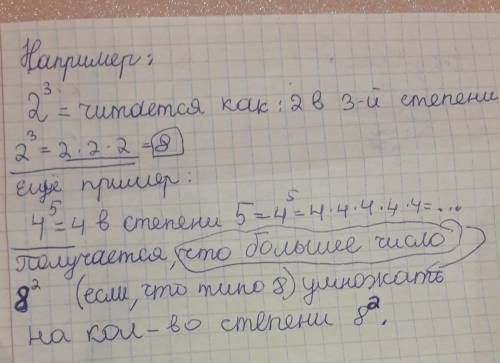 Например:
2³ = читается как: 2 в 3-й степени
2³ = 2 · 2 · 2 = 8
ещё пример:
4⁵ = 4 в степени 5 = 4⁵ = 4 · 4 · 4 · 4 · 4 = ...
получается, что большее число
8² (если, что типо 8) умножать
на кол-во степени 8².